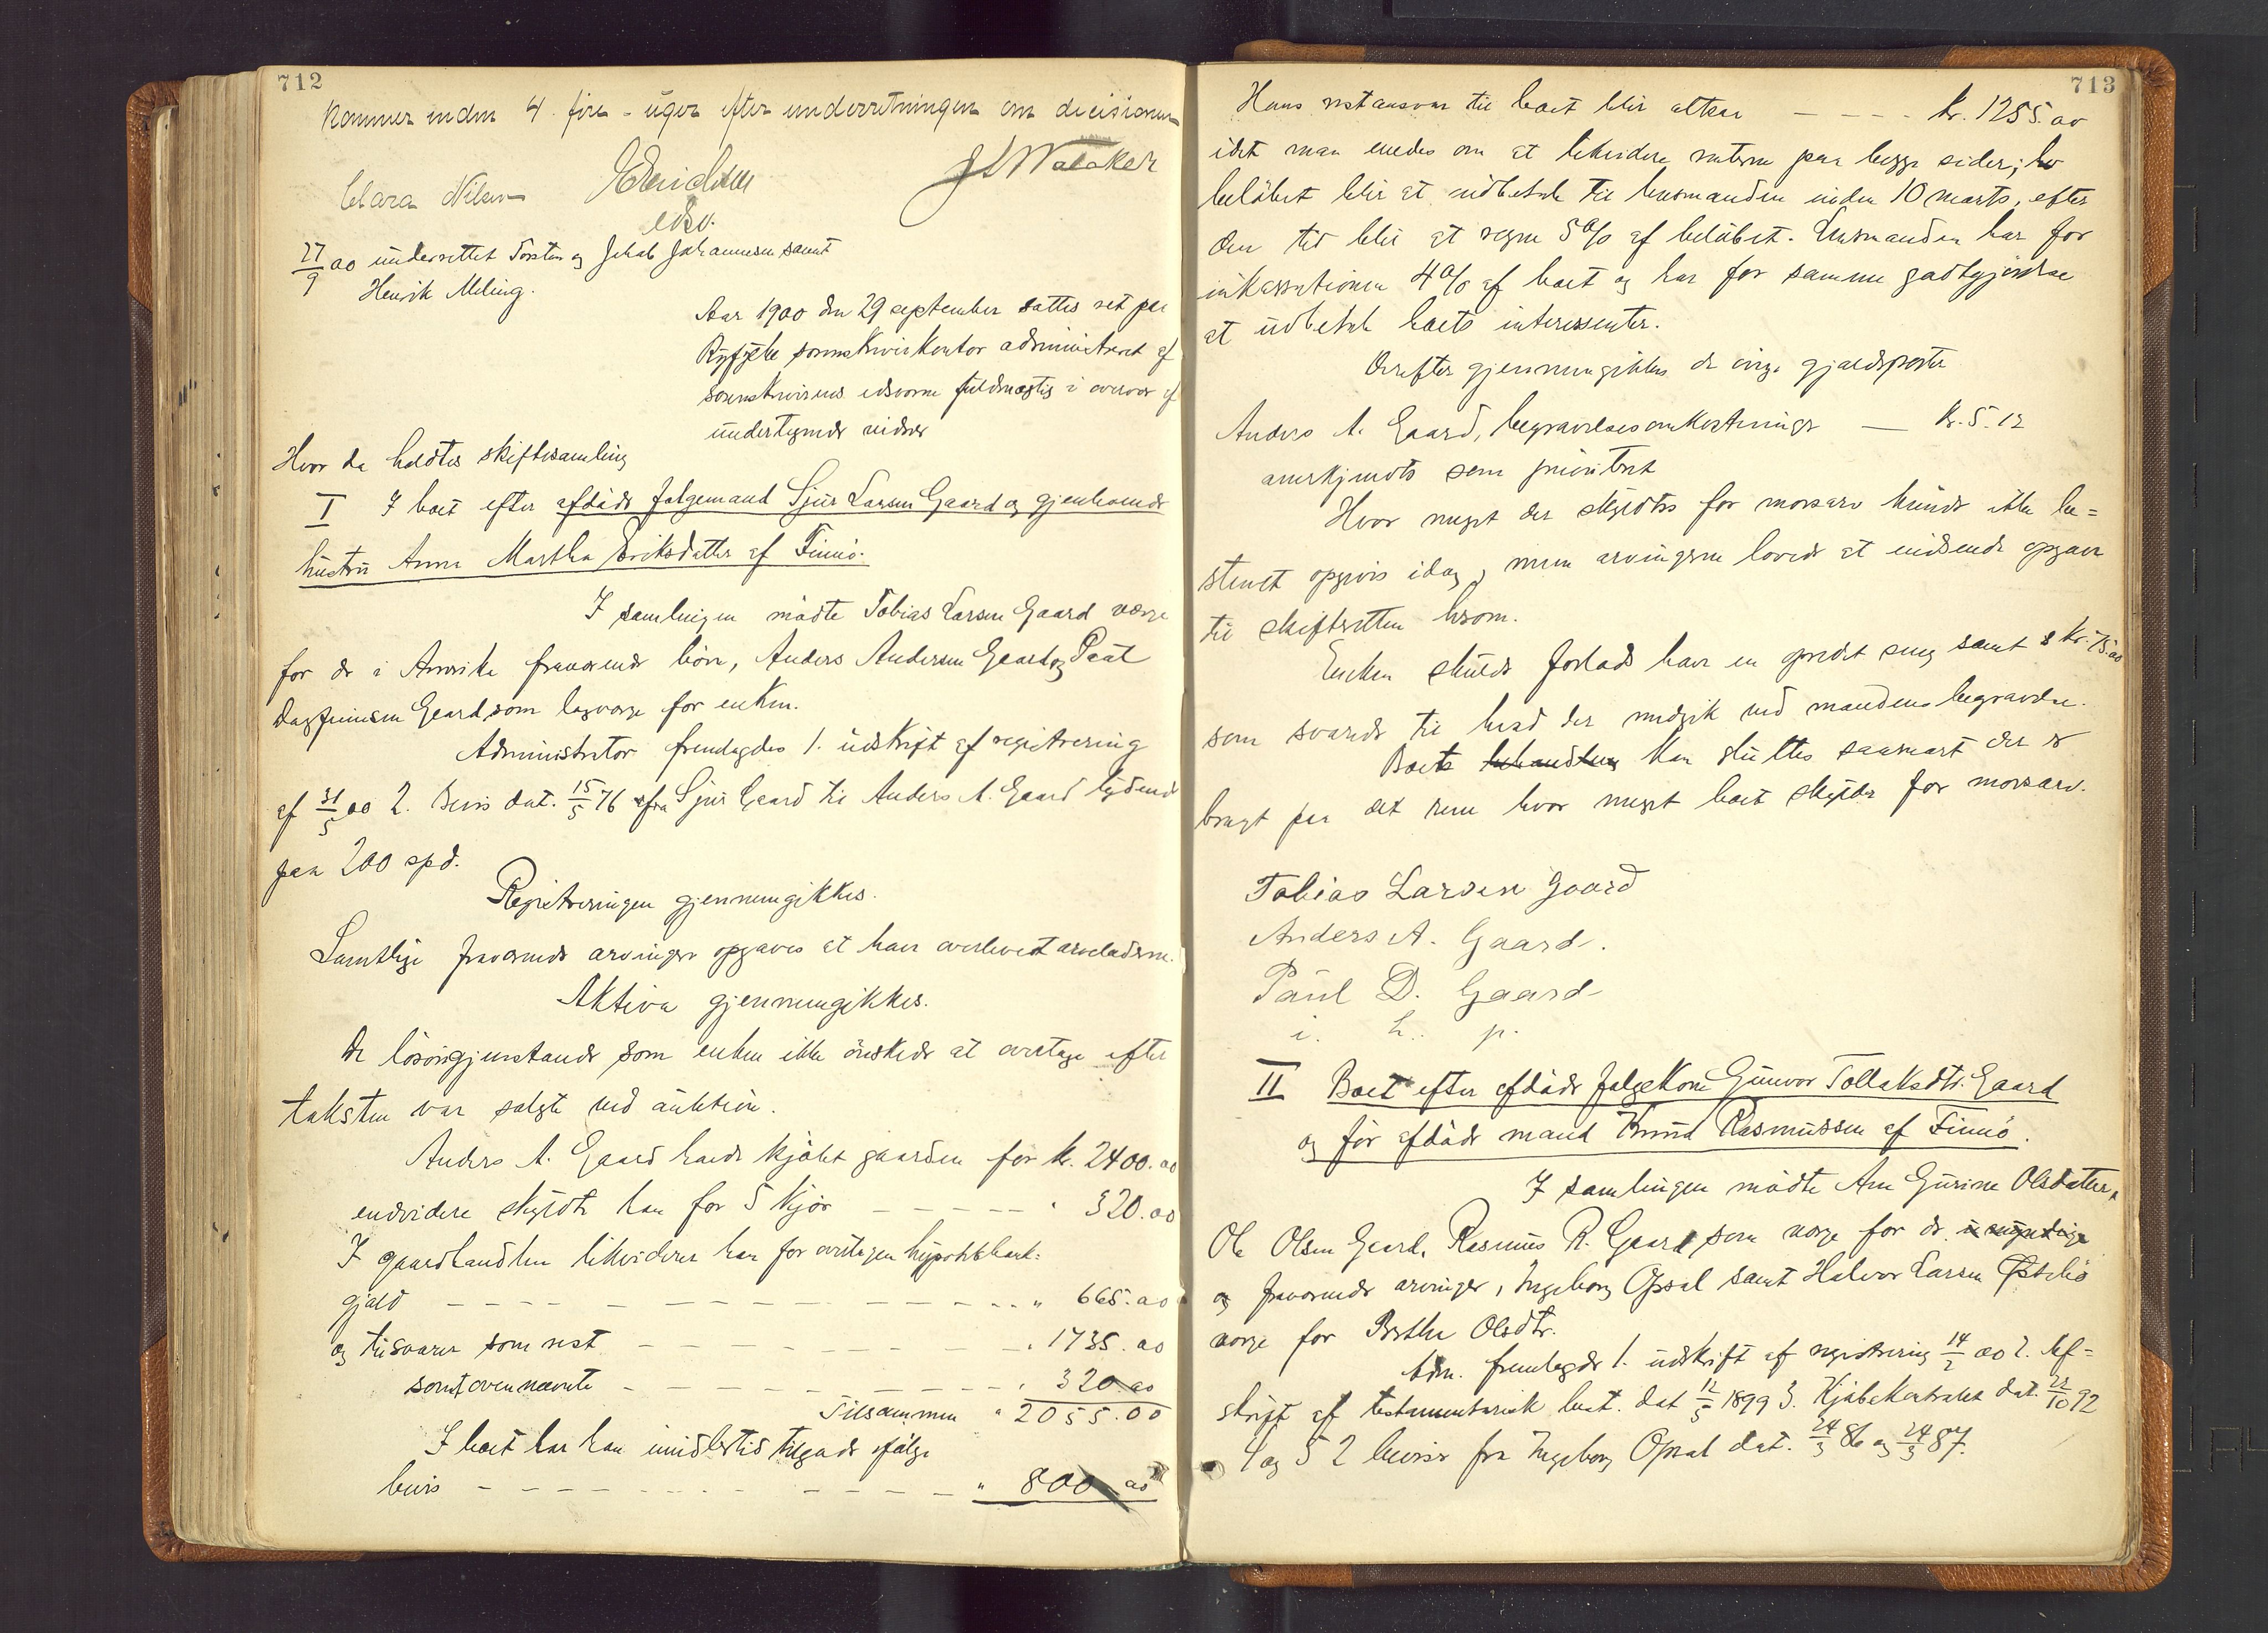 712
kommer inden 4 - fire - uger efter underretningen om decisionen
Clara Nilsen
JSWalaker
edsv.
27/9 00 underrettet Torsten og Jakob Johannesen samt
Henrik Meling.
Aar 1900 den 29 september sattes ret paa
Ryfylke sorenskriverkontor administreret af
sorenskriverens edsvorne fuldmægtig i overvær af
undertegnede vidner
Hvor da holdtes skiftesamling
I I boet efter afdøde følgemand Sjur Larsen Gaard og gjenlevende
hustru Anna Martha Eriksdatter af Finnø.
I samlingen mødte Tobias Larsen Gaard værge
for de i Amerika fraværende børn, Anders Andersen Gaard og Paul
Dagfinnsen Gaard som lagværge for enken.
Administrator fremlagdes 1. udskrift af registrering
af 31/5 00 2. Bevis dat. 15/5 76 fra Sjur Gaard til Anders A. Gaard lydende
paa 200 spd.
Registreringen gjennemgikkes.
Samtlige fraværende arvinger opgaves at have overlevet arveladeren.
Aktiva gjennemgikkes.
De løsøregjenstande som enken ikke ønskede at overtage efter
taksten var solgte ved auktion.
Anders A. Gaard havde kjøbt gaarden for kr. 2400.00
endvidere skyldte han for 5 kjør - - - - - " 320.00
I gaardhandlen likviderer han for overtagen hypothekbank=
gjæld - - - - - - - - - - - - " 665.00
og tilsvarer som rest - - - - - - - - - " 1735.00
samt ovennævnte - - - - - - - - - " 320.00
Tilsammen " 2055.00
I boet har han imidlertid tilgode ifølge
bevis - - - - - - - - - - - " 800.00
713
Hans restansvar til boet blir altsaa - - - - kr. 1255.00
idet man enedes om at likvidere renterne paa begge sider;
beløbet blir at udbetale til lensmanden inden 10 marts, efter
den tid blir at regne 5% af beløbet. Lensmanden har for
inkassationen 4% af boet og har for samme godtgjørelse
at udbetale boets interessenter.
Derefter gjennemgikkes de øvrige gjældsposter
Anders A. Gaard, begravelsesomkostninger — kr. 5.12
anerkjendtes som prioritert
Hvor meget der skyldtes for morsarv kunde ikke be=
stemt opgives idag, men arvingerne lovede at indsende opgave
til skifteretten herom.
Enken skulde forlods have en opredt seng samt kr. 75.00
som svarede til hvad der medgik ved mandens begravelse.
Boets behandling kan sluttes saasnart der er
bragt paa det rene hvor meget boet skylder for morsarv.
Tobias Larsen Gaard
Anders A. Gaard.
Paul D. Gaard
i. h. p.
II Boet efter afdøde følgekone Gunvor Tollaksdtr. Gaard
og før afdøde mand Knud Rasmussen af Finnø.
I samlingen mødte Ane Gurine Olsdatter,
Ole Olsen Gaard, Rasmus R. Gaard som værge for de umyndige
og fraværende arvinger, Ingeborg Opsal samt Halvor Larsen
værge for Berthe Olsdtr.
Adm. fremlagde 1. udskrift af registrering 14/2 00 2. Af=
skrift af testamentarisk best. dat 12/5 1899 3. Kjøbekontrakt dat. 22/10 92
4 og 5 2 beviser fra Ingeborg Opsal dat. 24/3 86 og 24/3 87.